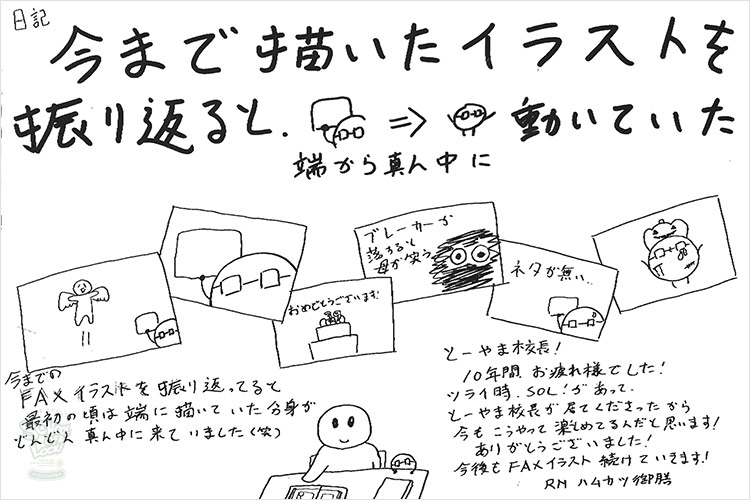 日記
今まで描いたイラストを
振り返ると、 ⇒ 動いていた
端から真ん中に
ブレーカーが
落ちると
母が笑う
おめでとうございます!
ネタが無い..
今までの
FAXイラストを振り返ってると
最初の頃は端に描いていた分身が
どんどん真ん中に来ていました(笑)
とーやま校長!
10年間お疲れ様でした!
ツライ時、SOL!があって、
とーやま校長が居てくださったから
今もこうやって楽しめてるんだと思います!
ありがとうございました!
今後もFAXイラスト続けていきます!
RN ハムカツ御膳